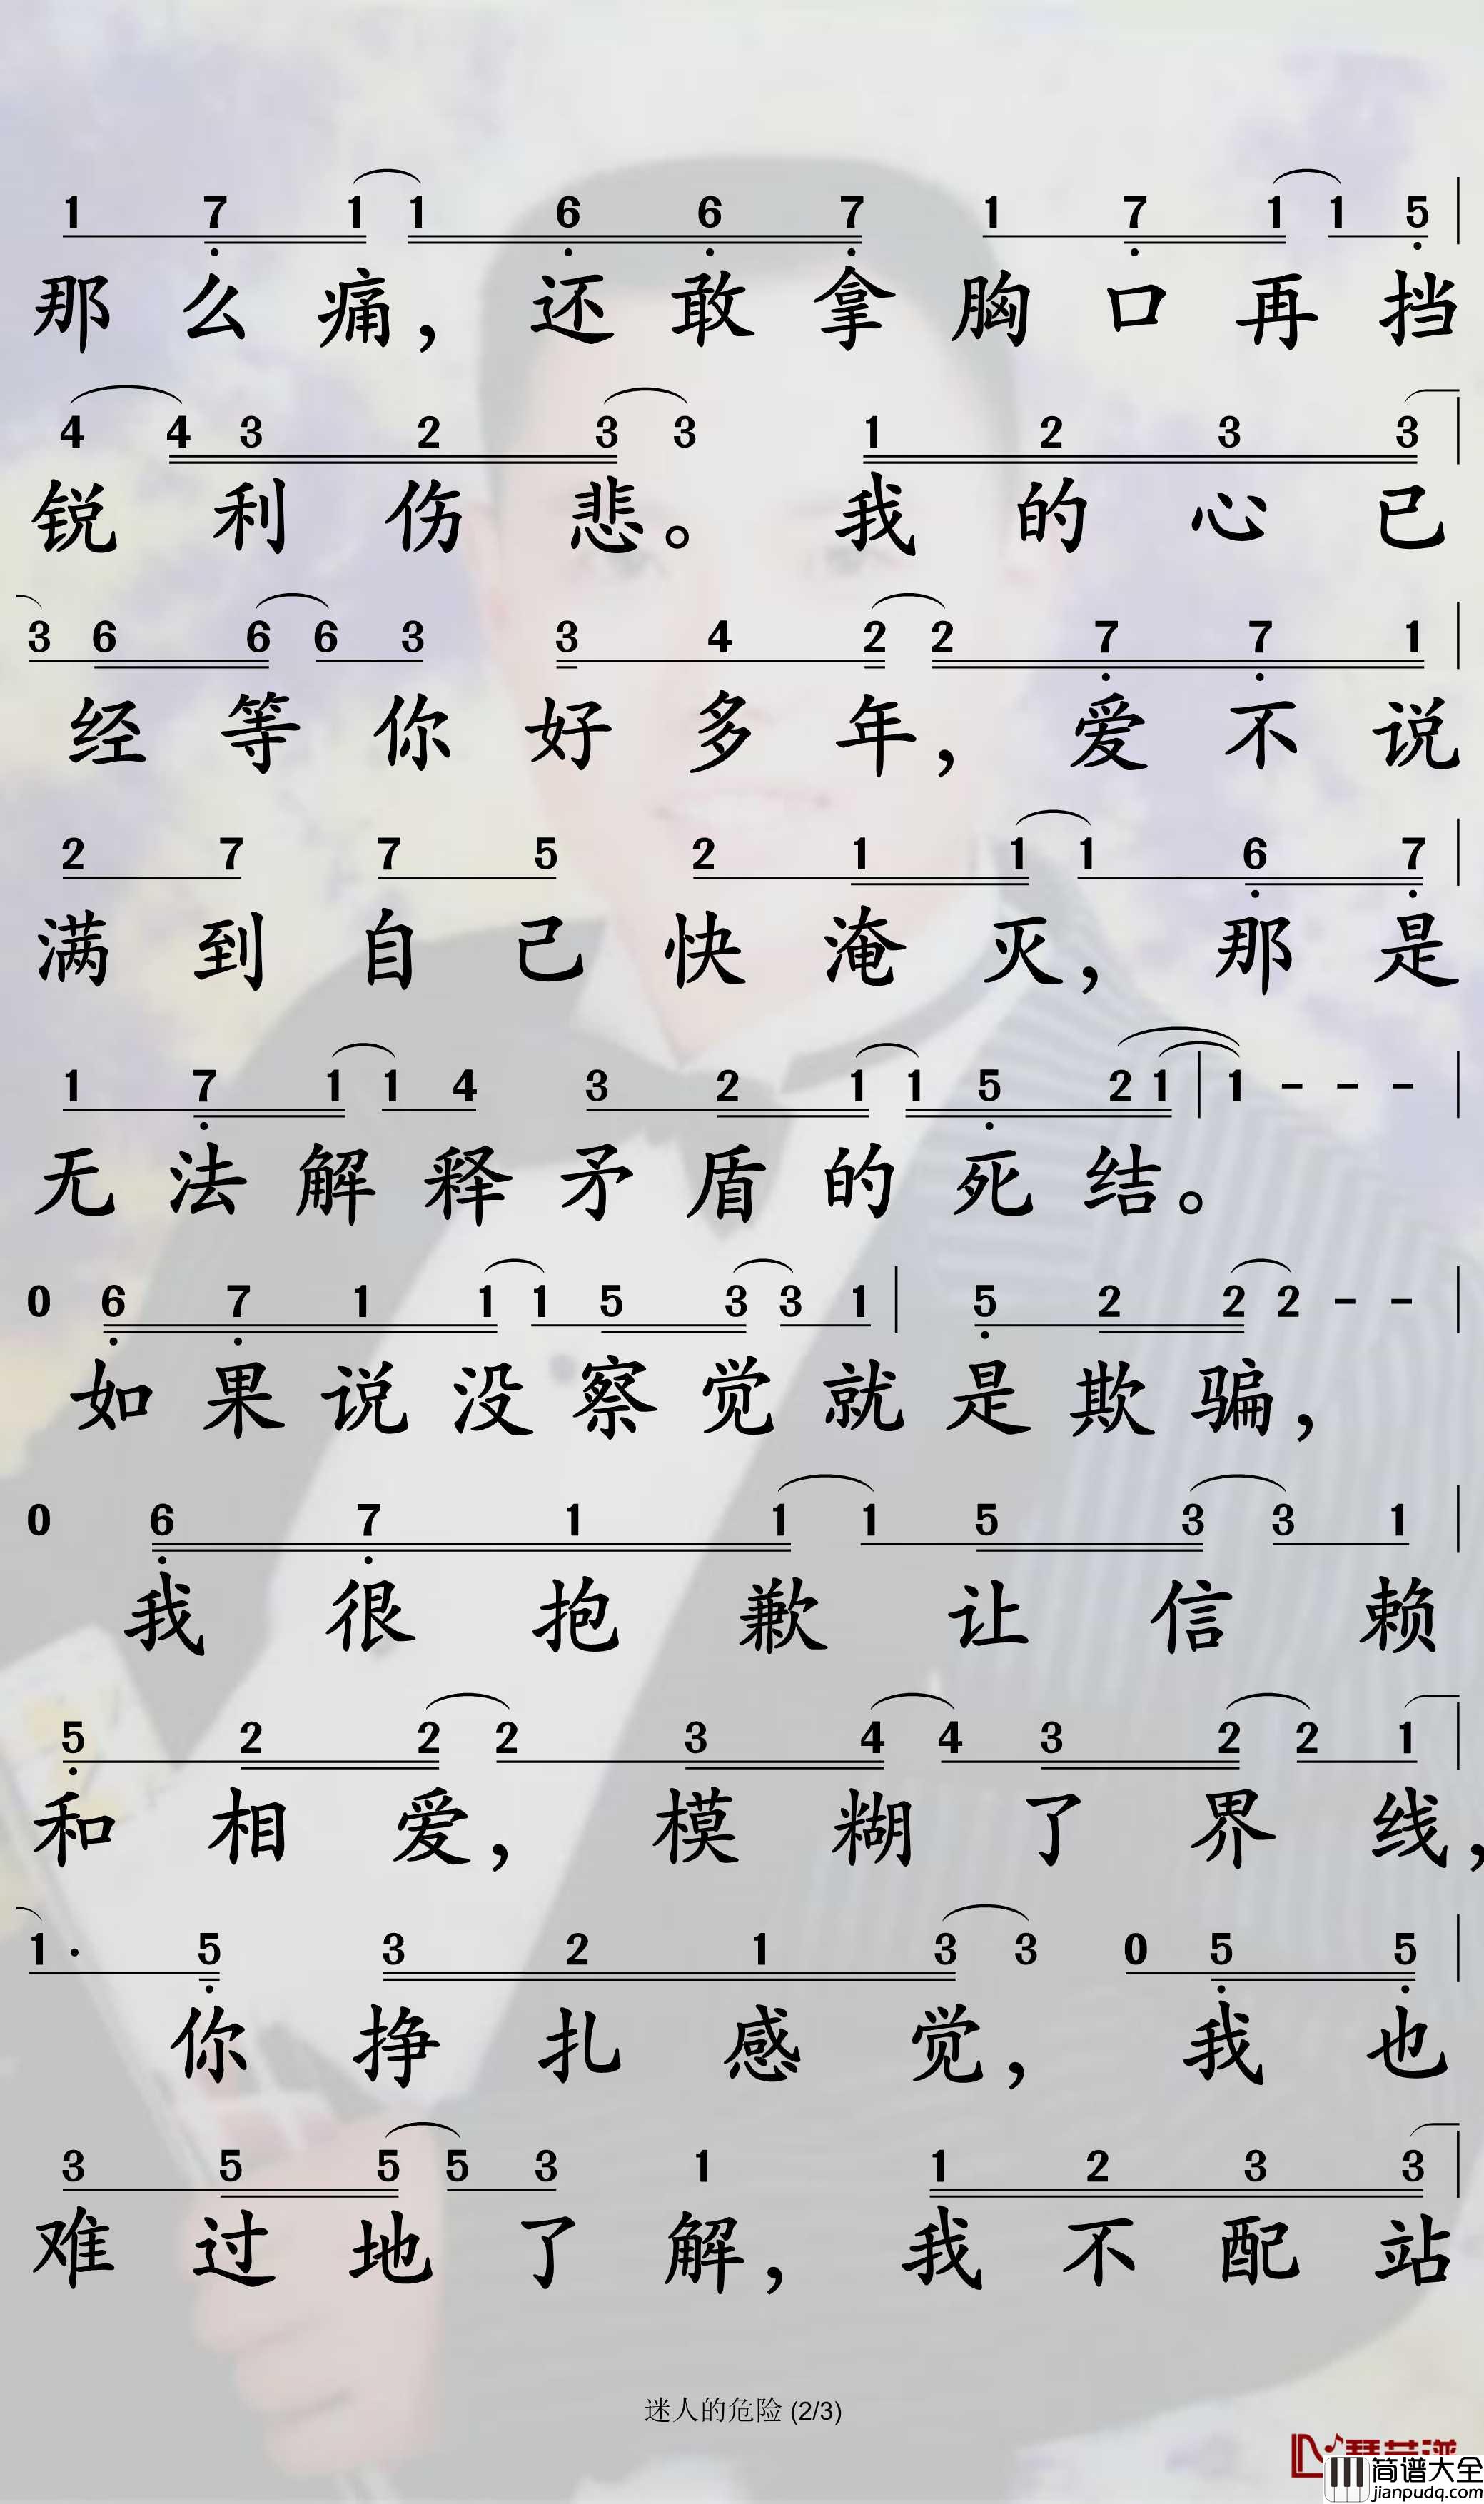 1 7 1 1 6 6 7 1 7 1 1 5
那么痛，还敢拿胸口再挡
4 4 3 2 3 3 1 2 3 3
锐利伤悲。我的心已
3 6 6 6 3 3 4 2 2 7 7 1
经等你好多年，爱不说
2 7 7 5 2 1 1 1 6 7
满到自己快淹灭，那是
1 7 1 1 4 3 2 1 1 5 2 1 1 - - -
无法解释矛盾的死结。
0 6 7 1 1 1 5 3 3 1 5 2 2 2 - -
如果说没察觉就是欺骗，
0 6 7 1 1 1 5 3 3 1
我很抱歉让信赖
5 2 2 2 3 4 4 3 2 2 1
和相爱，模糊了界线，
1· 5 3 2 1 3 3 0 5 5
你挣扎感觉，我也
3 5 5 5 3 1 1 2 3 3
难过地了解，我不配站
迷人的危险 (2/3)
简谱大全
jianpudq.com